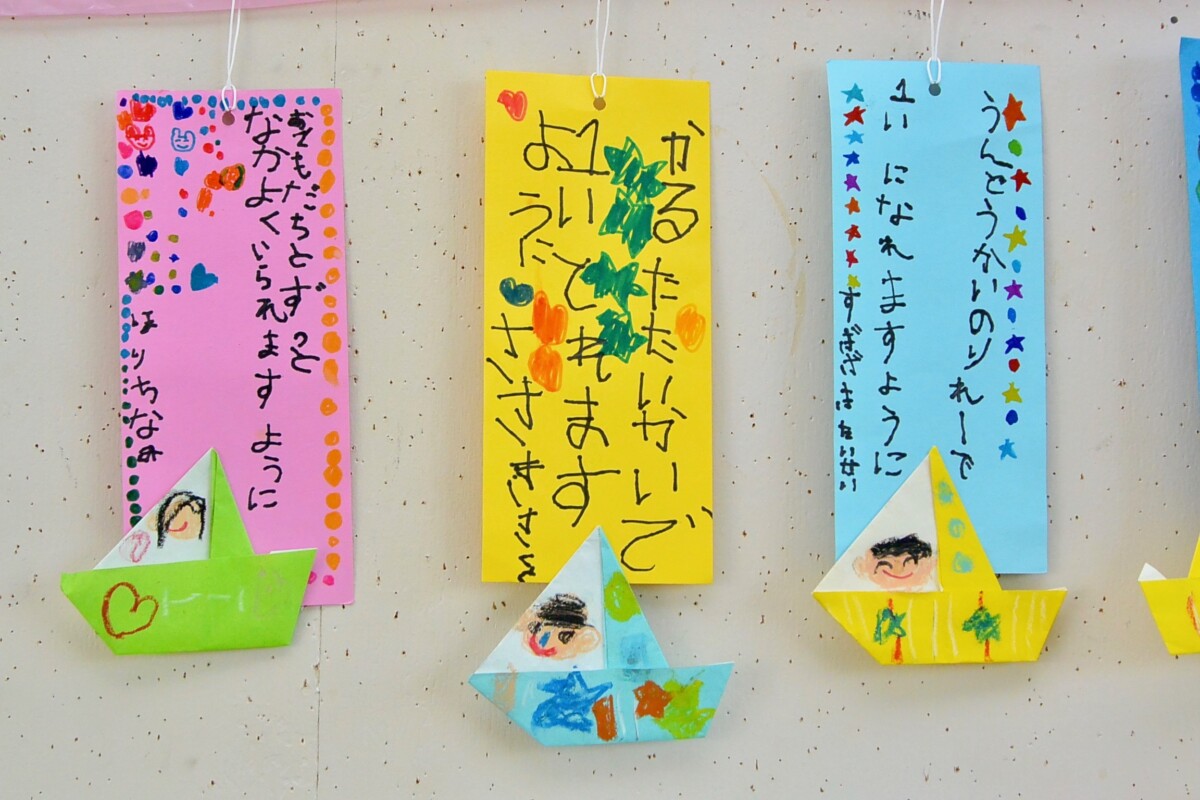 おともだちとずっと
なかよくいられます ように
ほりちなみ
かるたたいかいで
1いとれます
ように
うんどうかいのりれーで
1い になれますように
たいせい